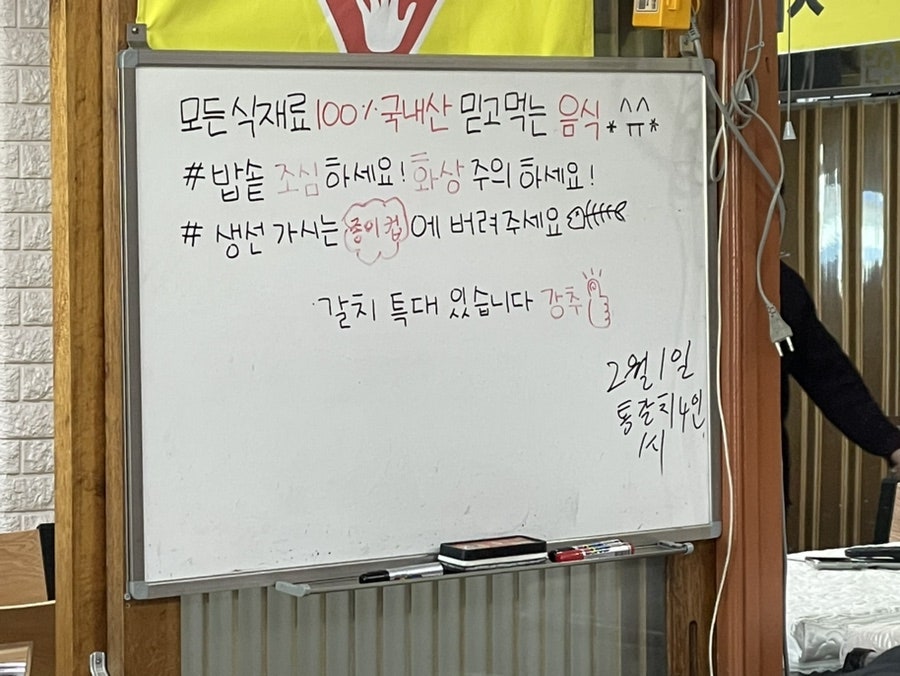 모든식재료 100%국내산 믿고먹는 음식 *^ㅠ^*
#밥솥 조심하세요! 화상 주의 하세요!
# 생선 가시는 종이컵에 버려주세요
갈치 특대 있습니다 강추
2월 1일
통갈치 4인
1시